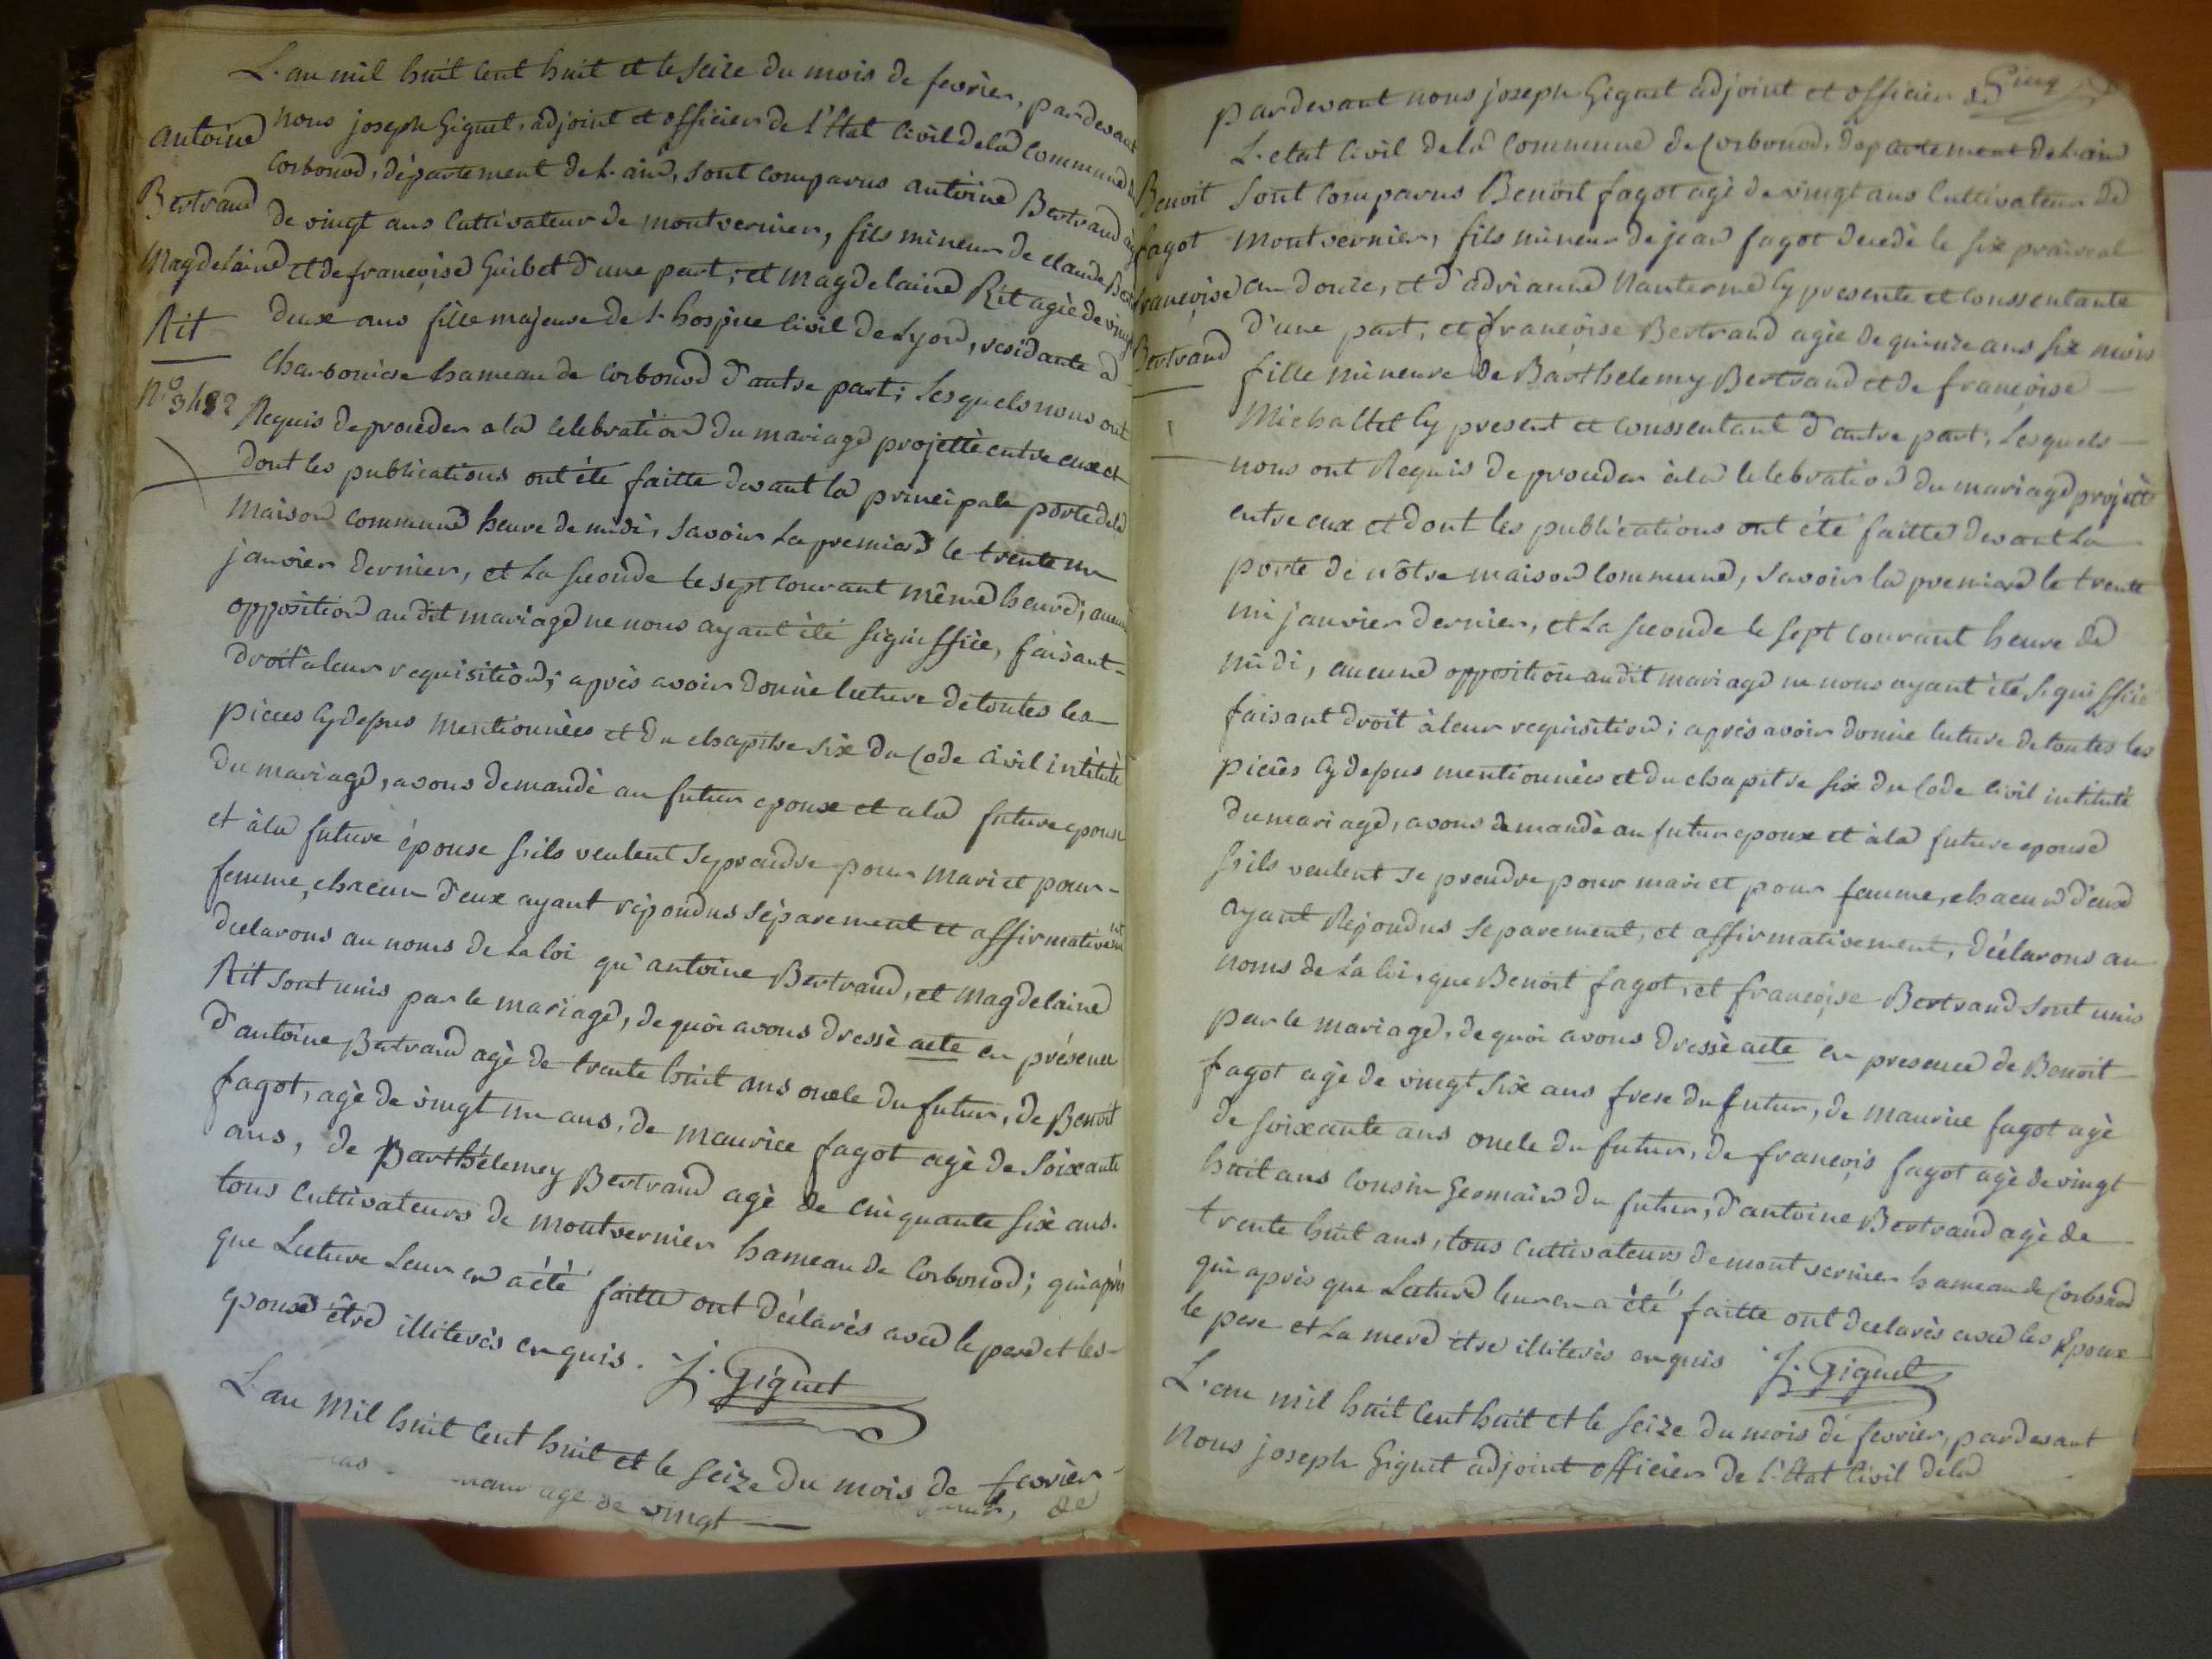 L'an mil huit cent huit et le seize du mois de fevrier, pardevant
nous joseph Giguet, adjoint et officier de l'Etat Civil de la Commune de
Corbonod, département de l'ain, sont comparus antoine Bertrand agé
de vingt ans Cultivateur de montvernier, fils mineur de claude Bert
et de françoise Guibet d'une part, et magdelaine Rit agèe de vingt
deux ans fille majeure de l'hospice Civil de Lyon, residante a
Charboniere hameau de Corbonod d'autre part; Lesquels nous ont
Requis de proceder a la Celebration du mariage projettè entre eux et
dont les publications ont éte faitte devant la principale porte de la
Maison commune heure de midi, Savoir La premiere le trente un
janvier dernier, et La Seconde le sept Courant même heure; aucune
opposition audit mariage ne nous ayant èté signiffièe, faisant
droit à leur requisition; après avoir donnè lecture de toutes les
pieces Cydessus mentionnèes et du chapitre Six du Code Civil intitulè
du mariage, avons demandè au futur epoux et a la future epouse
et à la future épouse S'ils veulent se prendre pour mari et pour
femme, chacun d'eux ayant répondus séparement et affirmativement
declarons au noms de la loi qu'antoine Bertrand, et magdelaine
Rit sont unis par le mariage, de quoi avons dressè acte en présence
d'antoine Bertrand agè de trente huit ans oncle du futur, de Benoit
fagot, agè de vingt un ans, de maurice fagot agè de Soixante
ans, de Barthélemey Bertrand agè de Cinquante Six ans.
tous Cultivateurs de montvernier hameau de Corbonod; qui après
que Lecture Leur en a été faitte ont déclarès avec le pere et les
epouse être illiterès enquis. J. Giguet
L'an mil huit Cent huit et le Seize du mois de fevrier
age de vingt
antoine
Bertrand
Magdelaine
Rit
N° 3482
Cinq
pardevant nous joseph Giguet adjoint et officier de
L'etat Civil de la Commune de Corbonod, departement de l'ain
Sont Comparus Benoit fagot agè de vingt ans Cultivateur de
Montvernier, fils mineur de jean fagot decedè le six praireal
an douze, et d'adrianne Nanterne Cy presente et Conssentante
d'une part, et françoise Bertrand agèe de quinze ans six mois
fille mineure de Barthelemy Bertrand et de françoise
Michallet Cy present et Conssentant d'autre part, Lesquels
nous ont Requis de proceder à la Celebration du mariage projettè
entre eux et dont les publications ont été faitte devant La
porte de nôtre maison Commune, Savoir la premiere le trente
un janvier dernier, et La Seconde le sept Courant heure de
midi, aucune opposition audit mariage ne nous ayant été signiffièe
faisant droit à leur requisition; après avoir donnè lecture de toutes les
pieces Cydessus mentionnèes et du chapitre Six du Code Civil intitulé
du mariage, avons demandè au futur epoux et à la future epouse
S'ils veulent se prendre pour mari et pour femme, chacun d'eux
ayant Repondus Separement, et affirmativement, déclarons au
noms de la loi, que Benoit fagot, et françoise Bertrand Sont unis
par le mariage, de quoi avons dressè acte en presence de Benoit
fagot agè de vingt Six ans frere du futur, de maurice fagot agè
de Soixante ans oncle du futur, de françois fagot agè de vingt
huit ans Cousin Germain du futur, d'antoine Bertrand agè de
trente huit ans, tous Cultivateurs de montvernier hameau de Corbonod
qui après que Lecture leur en a été faitte ont declarès avec les Epoux
le pere et La mere être illiterès enquis J. Giguet
L'an mil huit Cent huit et le Seize du mois de fevrier, pardevant
Nous joseph Giguet adjoint officier de l'Etat Civil de la
Benoit
fagot
françoise
Bertrand